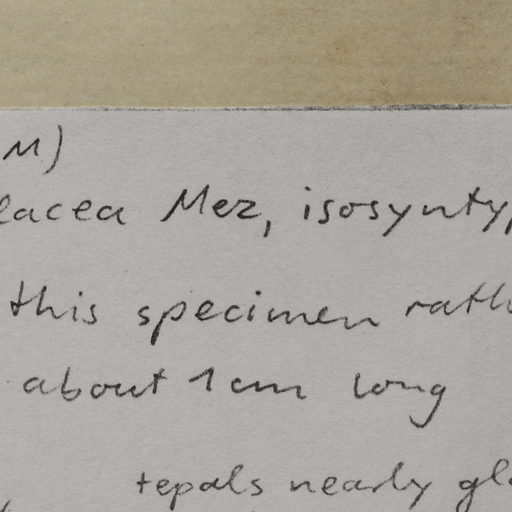 M)
lacea Mez, isosynty
this specimen rath
about 1 cm long
tepals nearly gla